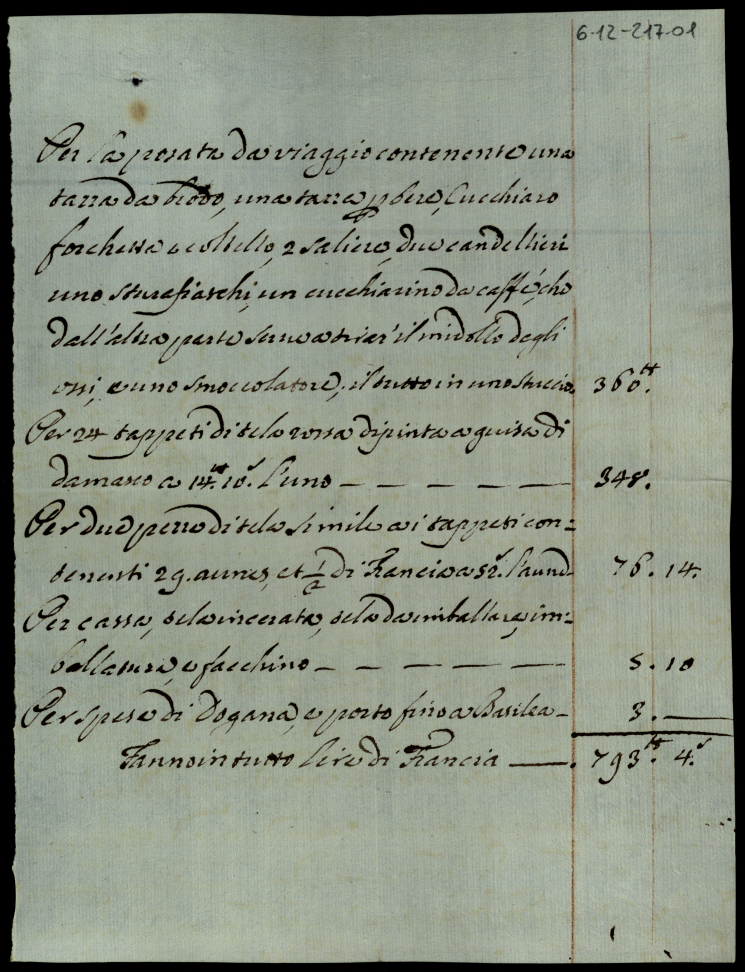 6-12-217-01
Per la posata da viaggio contenente una
tazza da brodo, una tazza p bere, Cucchiaro
forchetta e coltello, 2 saliere, due candellieri
uno sturafiaschi, un cucchiarino da caffé, che
dall'altra parte serve a tirar' il midollo degli
ossi, e uno smoccolatore, il tutto in uno stuccio. 360.tt
Per 24 tappeti di tela rossa dipinta a guisa di
damasco a 14.tt 10.s l'uno — — — — — — 348.
Per due pezze di tela simile a i tappeti con=
tenenti 29. aunes, et 1/2 di Francia a 52.s l'aund 76. 14.
Per cassa, tela incerata, tela da imballare, im=
ballatura, e facchino — — — — — — 5. 10
Per spese di Dogana, e porto fino a Basilea — 3. —
Fanno in tutto Lire di Francia — . 793.tt 4.s